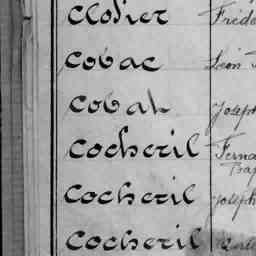 Clolier Fréde
Cobac Léon
Cobah Joseph
Cocheril Ferna
Bap
Cocheril Joseph
Cocheril